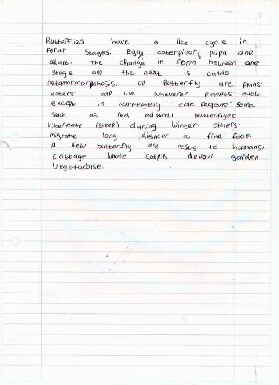 Butterflies have a life cycle in
four stages. Egg, caterpillar, pupa and
adult. The change in form between one
stage and the next is called
metamorphosis. All butterfly are plant
eaters and live wherever plants
except in extremely cold regions. Some
such as red admiral butterflies
hibernate (sleep) during winter. Others
migrate long distance to find food
A few butterfly are pests to humans.
Cabbage white caterpillars devour garden
vegetables.